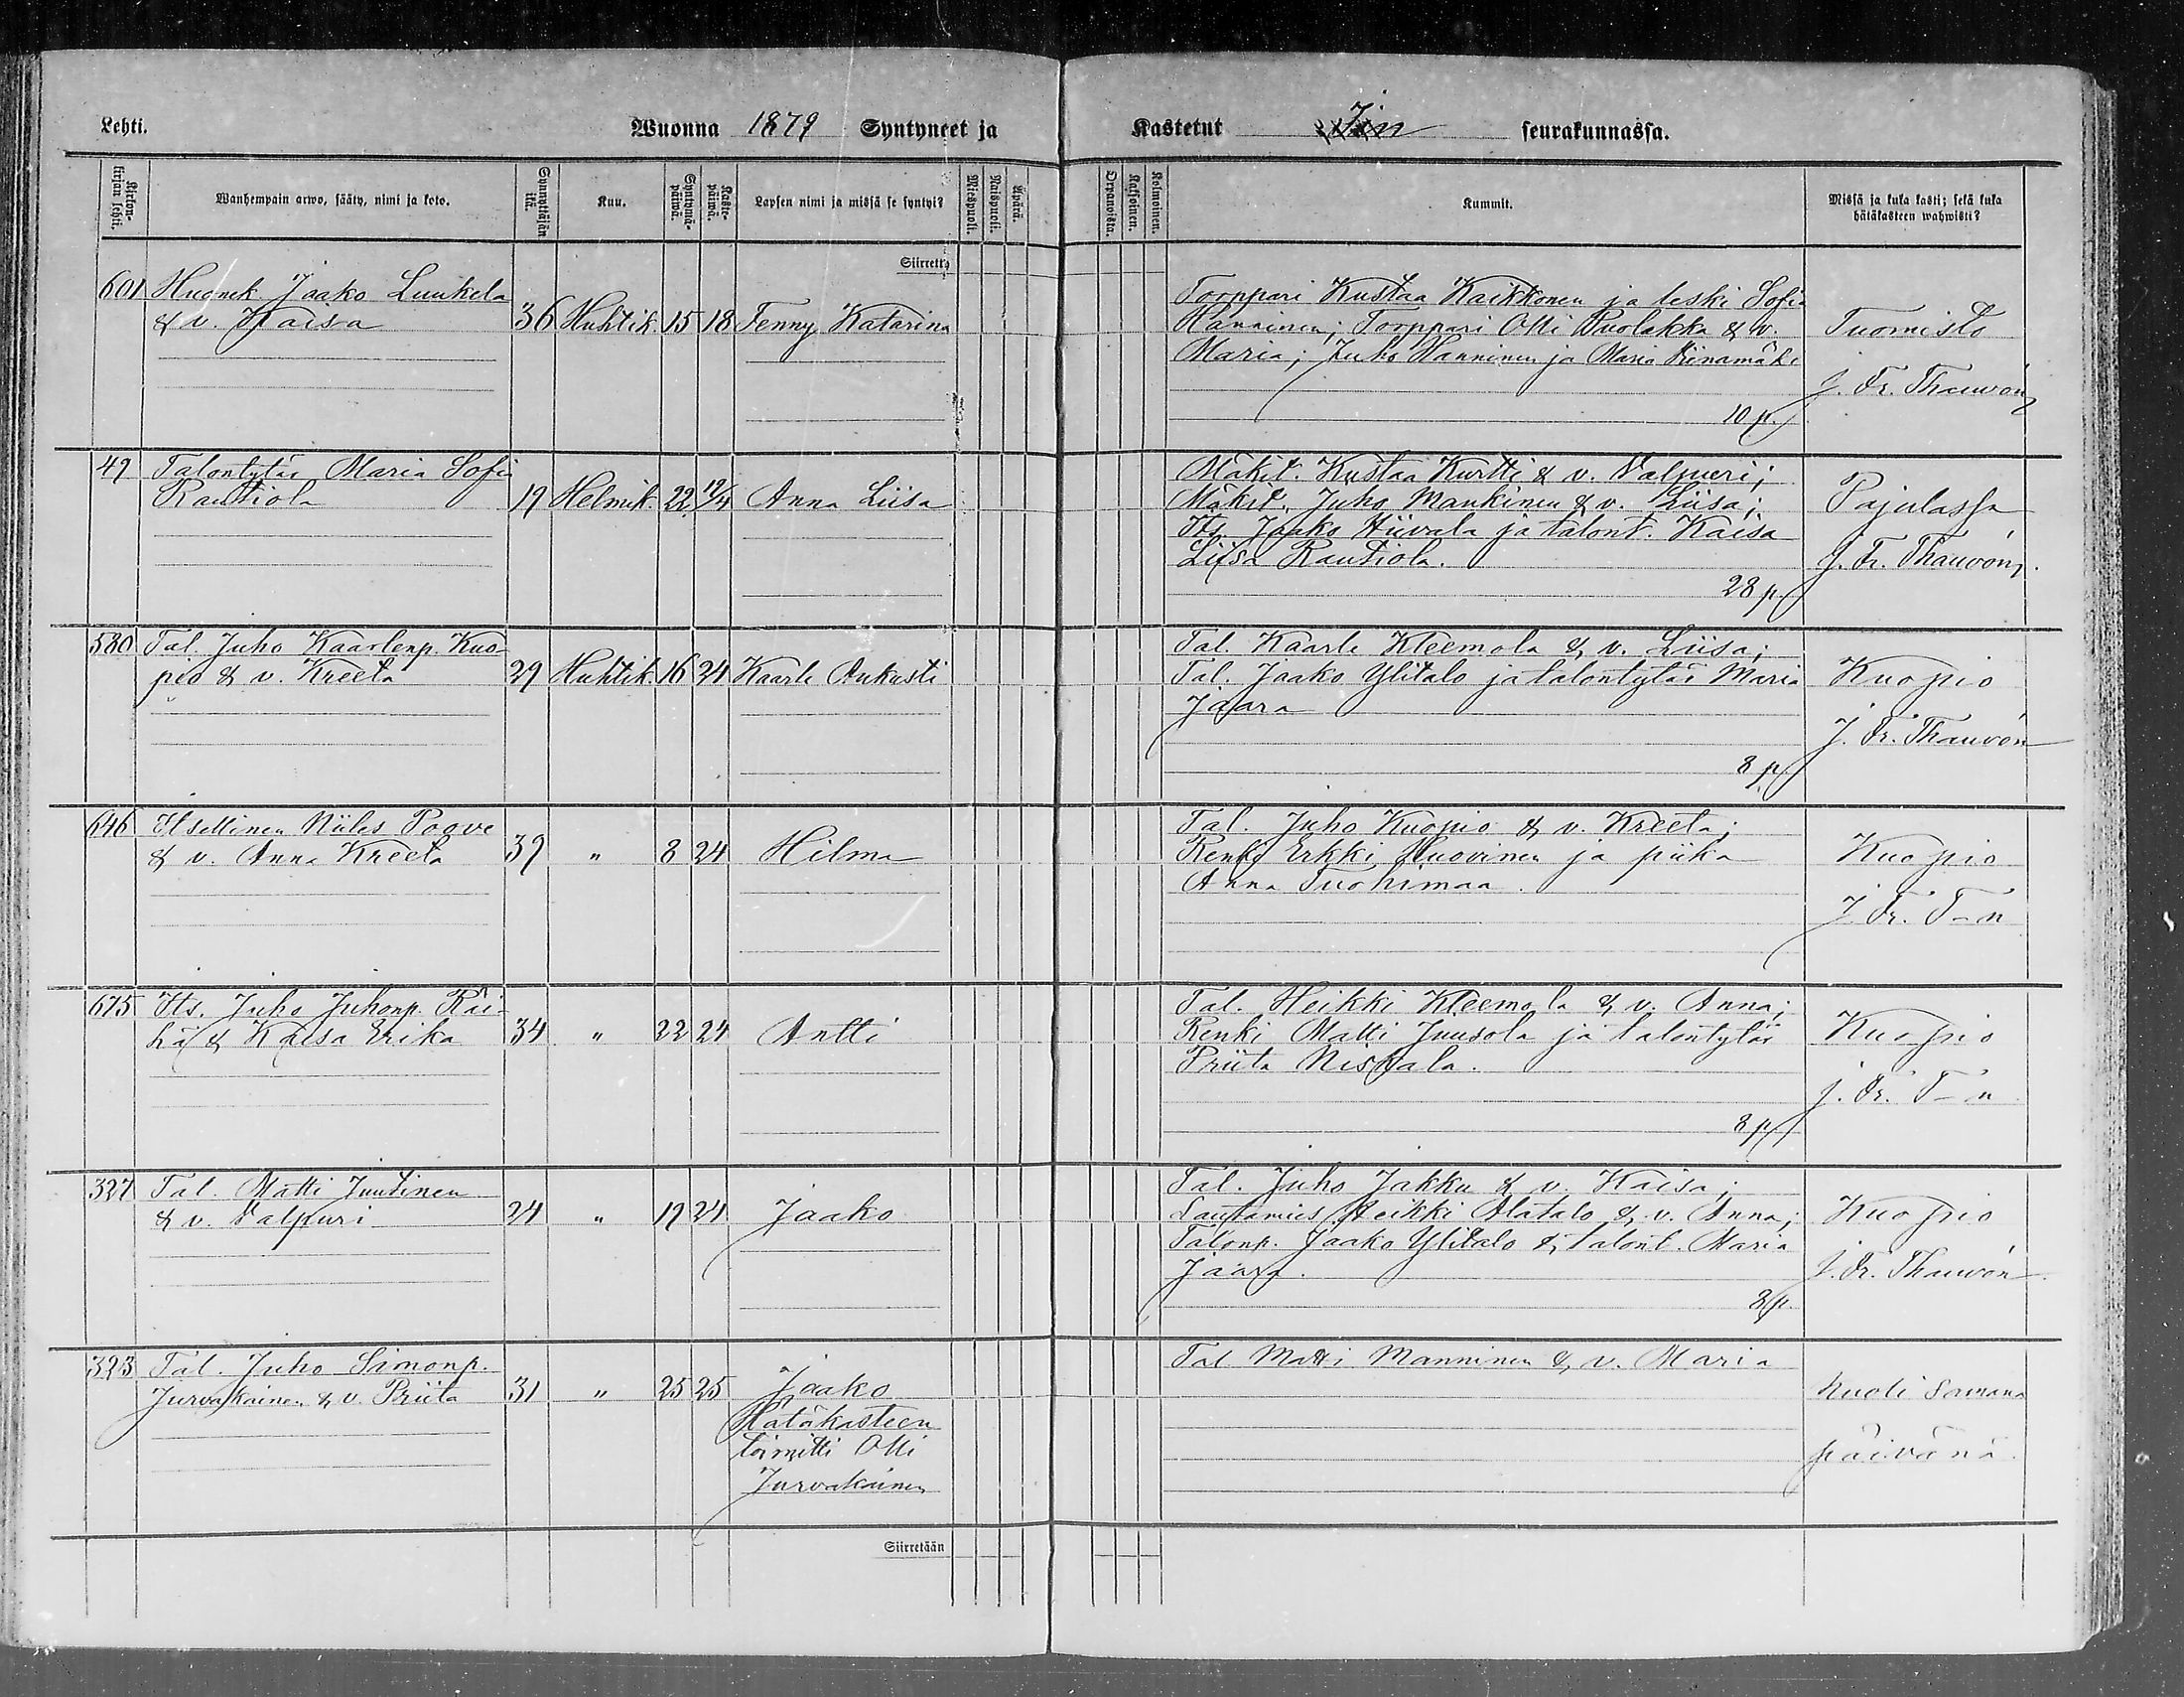 Lehti.
Wuonna 1879 Syntyneet ja
Kastetut Iin seurakunnassa.
Kirkonkirjan lehti.
Wanhempain arwo, sääty, nimi ja koto.
Synnyttäjän ikä.
Kuu.
Syntymäpäiwä.
Kastepäiwä.
Lapsen nimi ja missä se syntyi?
Miespuoli.
Naispuoli.
Äpärä.
Orpanoista.
Kaksoinen.
Kolmoinen.
Kummit.
Missä ja kuka kasti; sekä kuka
hätäkasteen wahwisti?
Siirretty
601 Huonek. Jaako Luukela
& v. Kaisa 36 Huhtik. 15 18 Fenny Katarina
Torppari Kustaa Kaikkonen ja leski Sofia
Hanninen; Torppari Olli Puolakka & v.
Maria; Juho Hanninen ja Maria Riinamäki
10 p.
Tuomisto
J. Fr. Thauvón
49 Talontytär Maria Sofia
Rautiola 19 Helmik. 22 19/4 Anna Liisa
Mäkit. Kustaa Kurtti & v. Valpuri;
Mäkit. Juho Mankinen & v. Liisa;
Its. Jaako Hiivala ja talont. Kaisa
Liisa Rautiola.
28 p.
Pajulassa
J. Fr. Thauvón.
580 Tal. Juho Kaarlenp. Kuo-
pio & v. Kreeta 29 Huhtik. 16 24 Kaarle Aukusti
Tal. Kaarle Kleemola & v. Liisa;
Tal. Jaako Ylitalo ja talontytär Maria
Jaara
8 p.
Kuopio
J. Fr. Thauvón
646 Itsellinen Niiles Poove
& v. Anna Kreeta 39 " 8 24 Hilma
Tal. Juho Kuopio & v. Kreeta;
Renki Erkki Huovinen ja piika
Anna Tuohimaa.
Kuopio
J. Fr. T-n
675 Its. Juho Juhonp. Räi-
hä & Kaisa Erika 34 " 22 24 Antti
Tal. Heikki Kleemola & v. Anna;
Renki Matti Juusola ja talontytär
Priita Niskala.
8 p
Kuopio
J. Fr. T-n
327 Tal. Matti Juutinen
& v. Valpuri 24 " 19 24 Jaako
Tal. Juho Jakku & v. Kaisa;
Lautamies Heikki Alatalo & v. Anna;
Talonp. Jaako Ylitalo & talont. Maria
Jaara.
8 p.
Kuopio
J. Fr. Thauvón
323 Tal. Juho Simonp.
Jurvakainen & v. Priita 31 " 25 25 Jaako
Hätäkasteen
toimitti Olli
Jurvakainen
Tal Matti Manninen & v. Maria
Kuoli samana
päivänä.
Siirretään